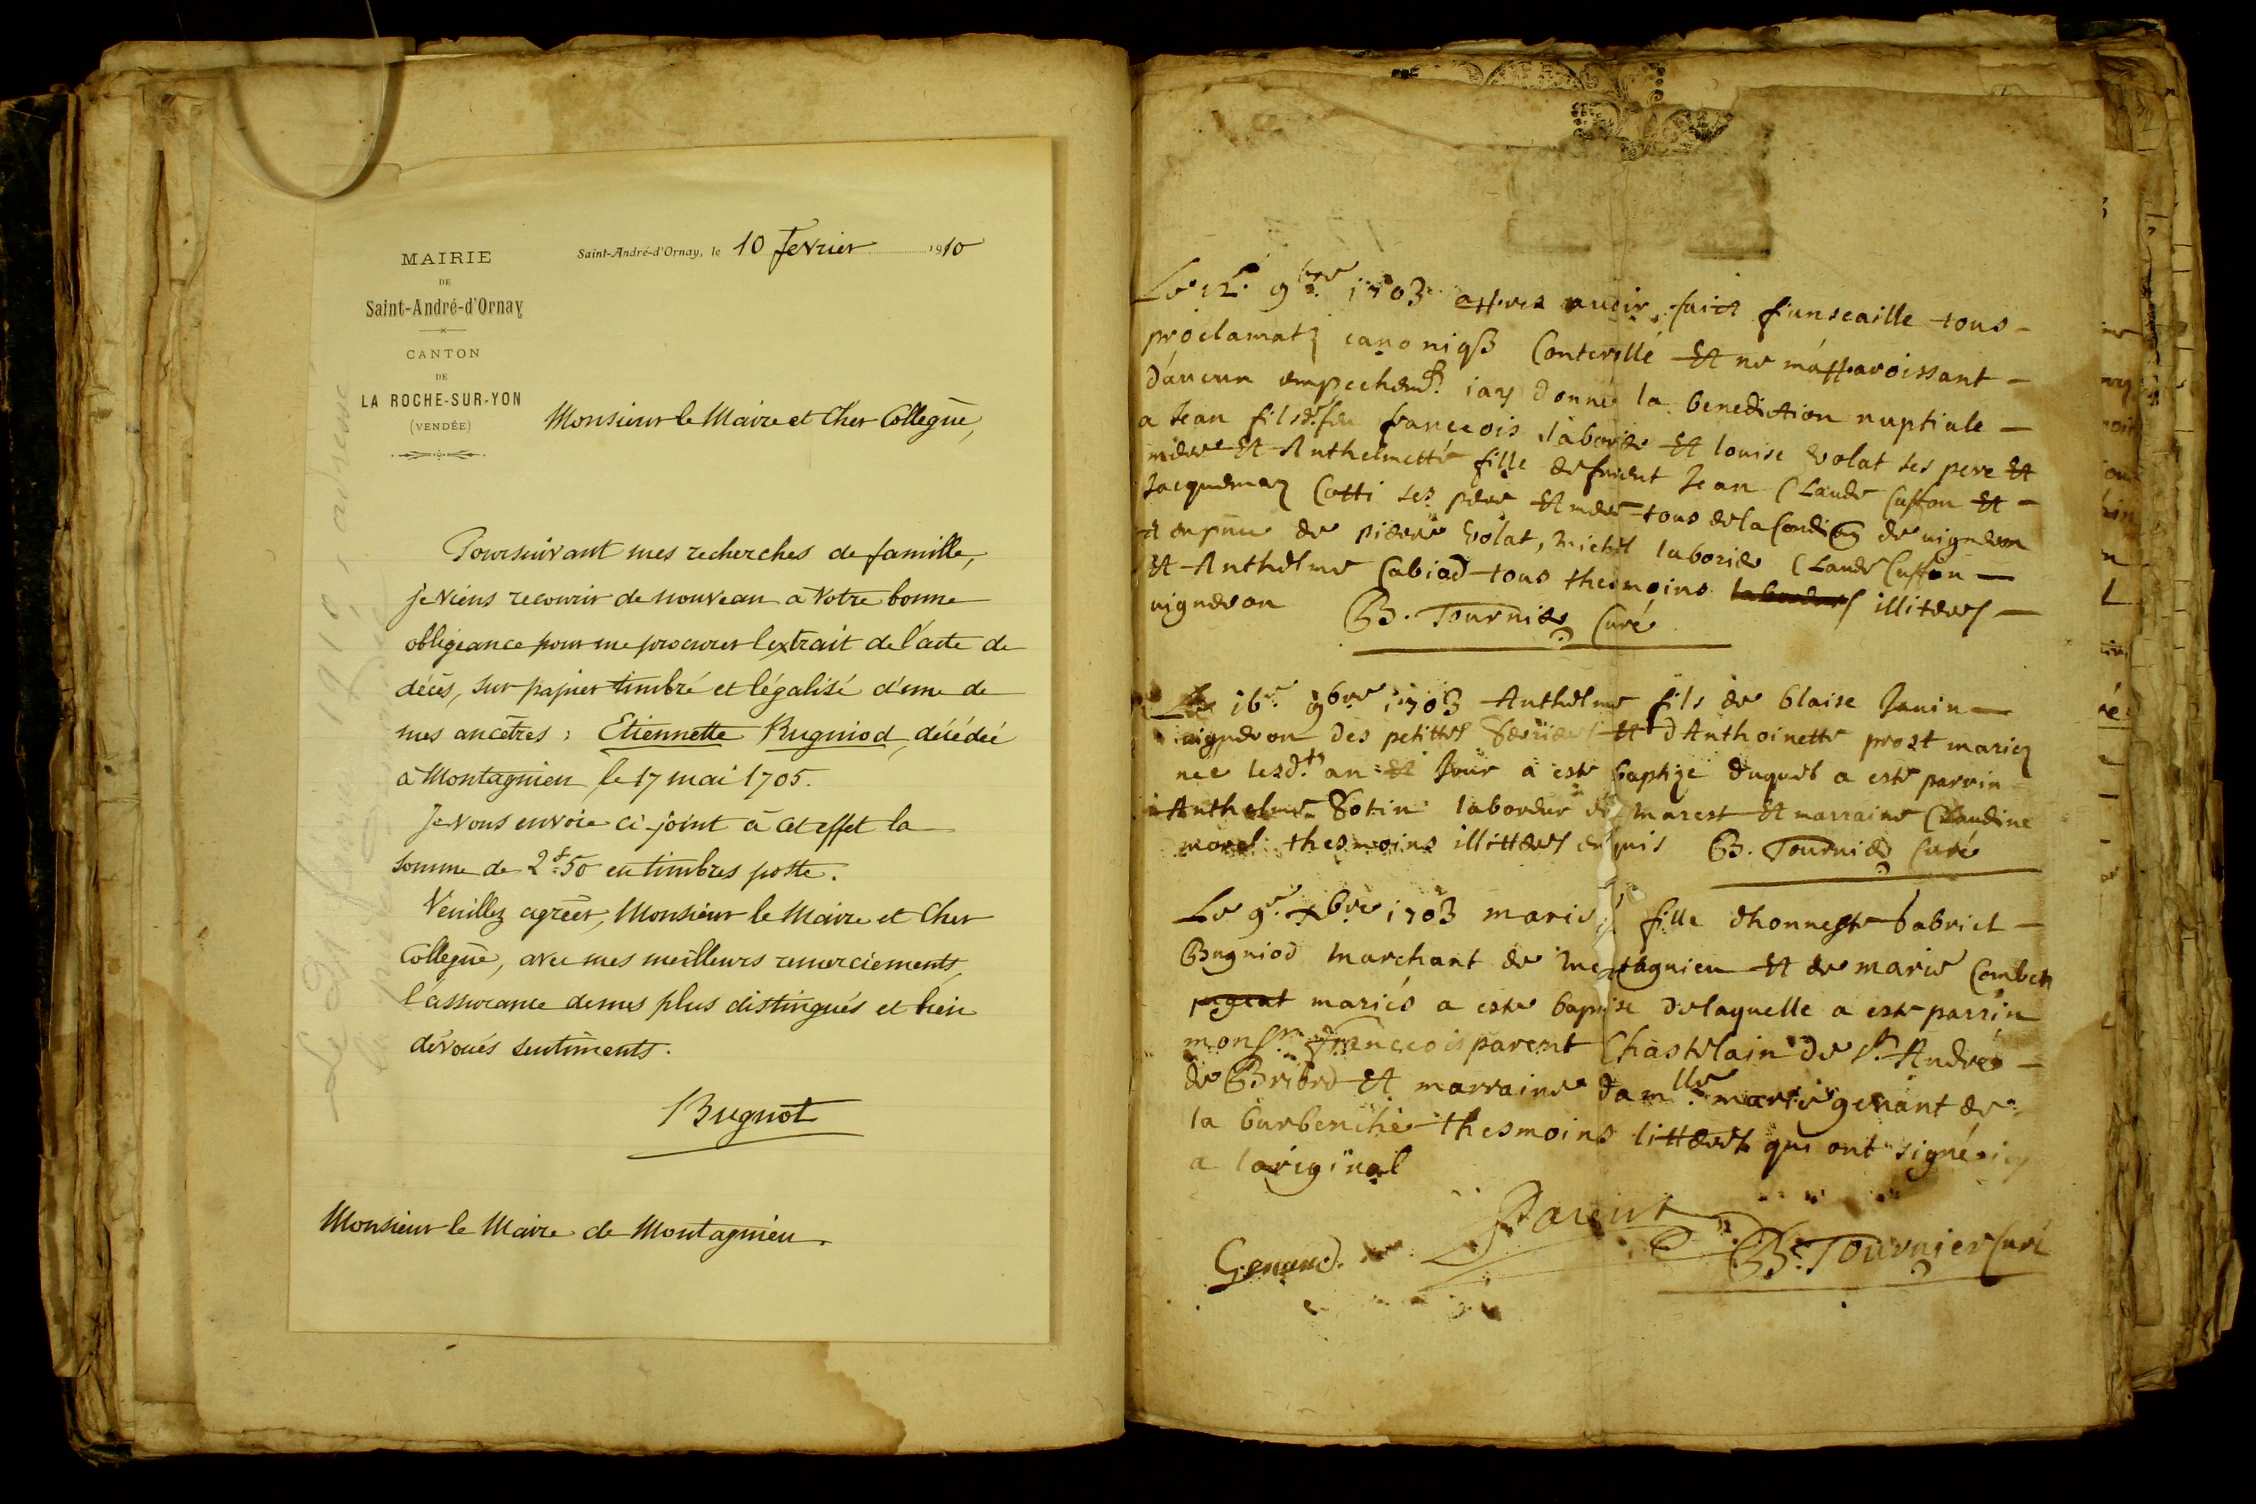 MAIRIE
DE
Saint-André-d'Ornay
CANTON
DE
LA ROCHE-SUR-YON
(VENDÉE)
Saint-André-d'Ornay, le 10 fevrier 1910
Monsieur le Maire et Cher Collegue,
Poursuivant mes recherches de famille,
je viens recourir de nouveau à votre bonne
obligeance pour me procurer l'extrait de l'acte de
décès, sur papier timbré et légalisé d'une de
mes ancêtres : Etiennette Bugniod, décédée
à Montagnieu le 17 mai 1705.
Je vous envoie ci-joint à cet effet la
somme de 2f50 en timbres poste.
Veuillez agréer, Monsieur le Maire et Cher
Collegue, avec mes meilleurs remerciements,
l'assurance de mes plus distingués et bien
dévoués sentiments.
Bugnot
Monsieur le Maire de Montagnieu.
9bre 1703 appres avoir faict tous
proclamat canoniq Et ne m'apparoissant
d'aucun empechemt iay donné la benediction nuptiale
a Jean fils de feu francois laborie Et louise volat ses pere Et
mere Et Anthelmette fille de Jean Claude Cuffon Et
Catti ses pere Et mere tous de la de vigneron
de pierre volat, michel laborie Claude Cuffon
Et Anthelme Cabiod tous thesmoins illiters
vigneron B. Tournier Curé
16e 9bre 1703 Anthelme fils de blaise Janin
vigneron des petittes Et d Anthoinette prost mariez
nee lesd. an Et Jour a este baptize duquel a este parrin
Anthelme laboreur Et marraine Claudine
morel thesmoins illitters B. Tournier Curé
Le 9e xbre 1703 marie fille dhonneste Gabriel
Bugniod marchant de Montagnieu Et de marie
mariés a este baptise de laquelle a este parrin
monsr francois parent Chastelain de St. Andre
de Briord Et marraine damlle marie de
la thesmoins litters qui ont signé
a loriginal
Parent
B. Tournier Curé